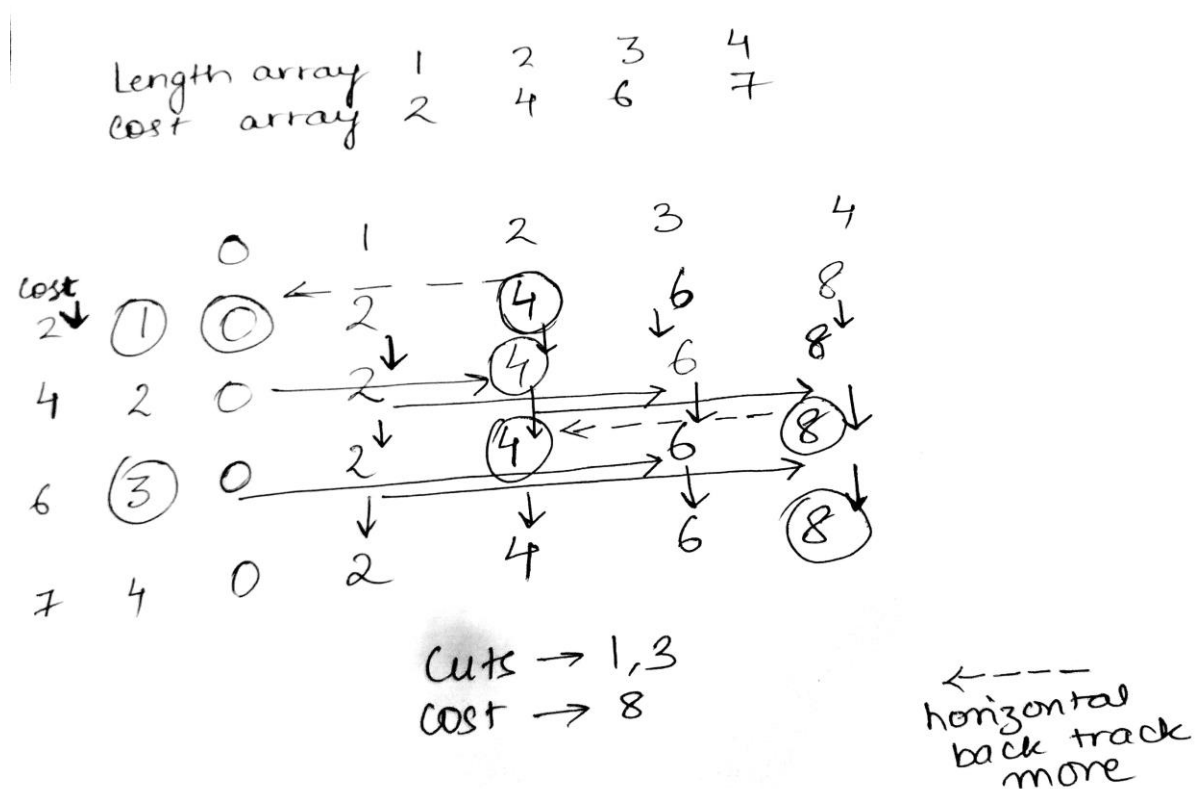 Length array 1 2 3 4
cost array 2 4 6 7
0 1 2 3 4
cost
2 1 0 2 4 6 8
4 2 0 2 4 6 8
6 3 0 2 4 6 8
7 4 0 2 4 6 8
Cuts → 1,3
cost → 8
horizontal
back track
more